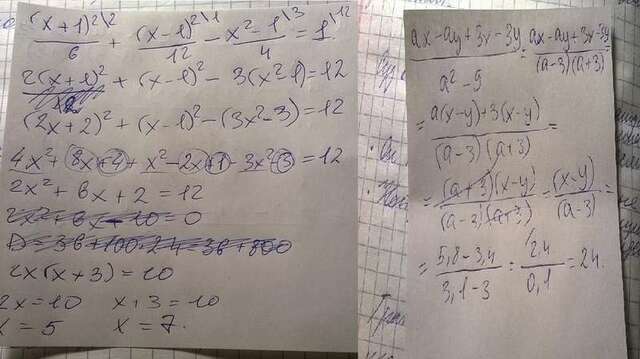 (x+1)²\² / 6 + (x-1)²\¹ / 12 - x²-1\³ / 4 = 1\¹²
2(x+1)² + (x-1)² - 3(x²-1) = 12
(2x+2)² + (x-1)² - (3x²-3) = 12
4x² + 8x+4 + x² - 2x+1 - 3x² 3 = 12
2x² + 6x + 2 = 12
2x² + 6x - 10 = 0
D = 36 + 100·24 = 36 + 800
2x(x+3) = 10
2x = 10 x+3 = 10
x = 5 x = 7.
ax-ay+3x-3y / a²-9 = ax-ay+3x-3y / (a-3)(a+3)
= a(x-y)+3(x-y) / (a-3)(a+3) =
= (a+3)(x-y) / (a-3)(a+3) = (x-y) / (a-3) =
= 5,8-3,4 / 3,1-3 = 2,4 / 0,1 = 24.